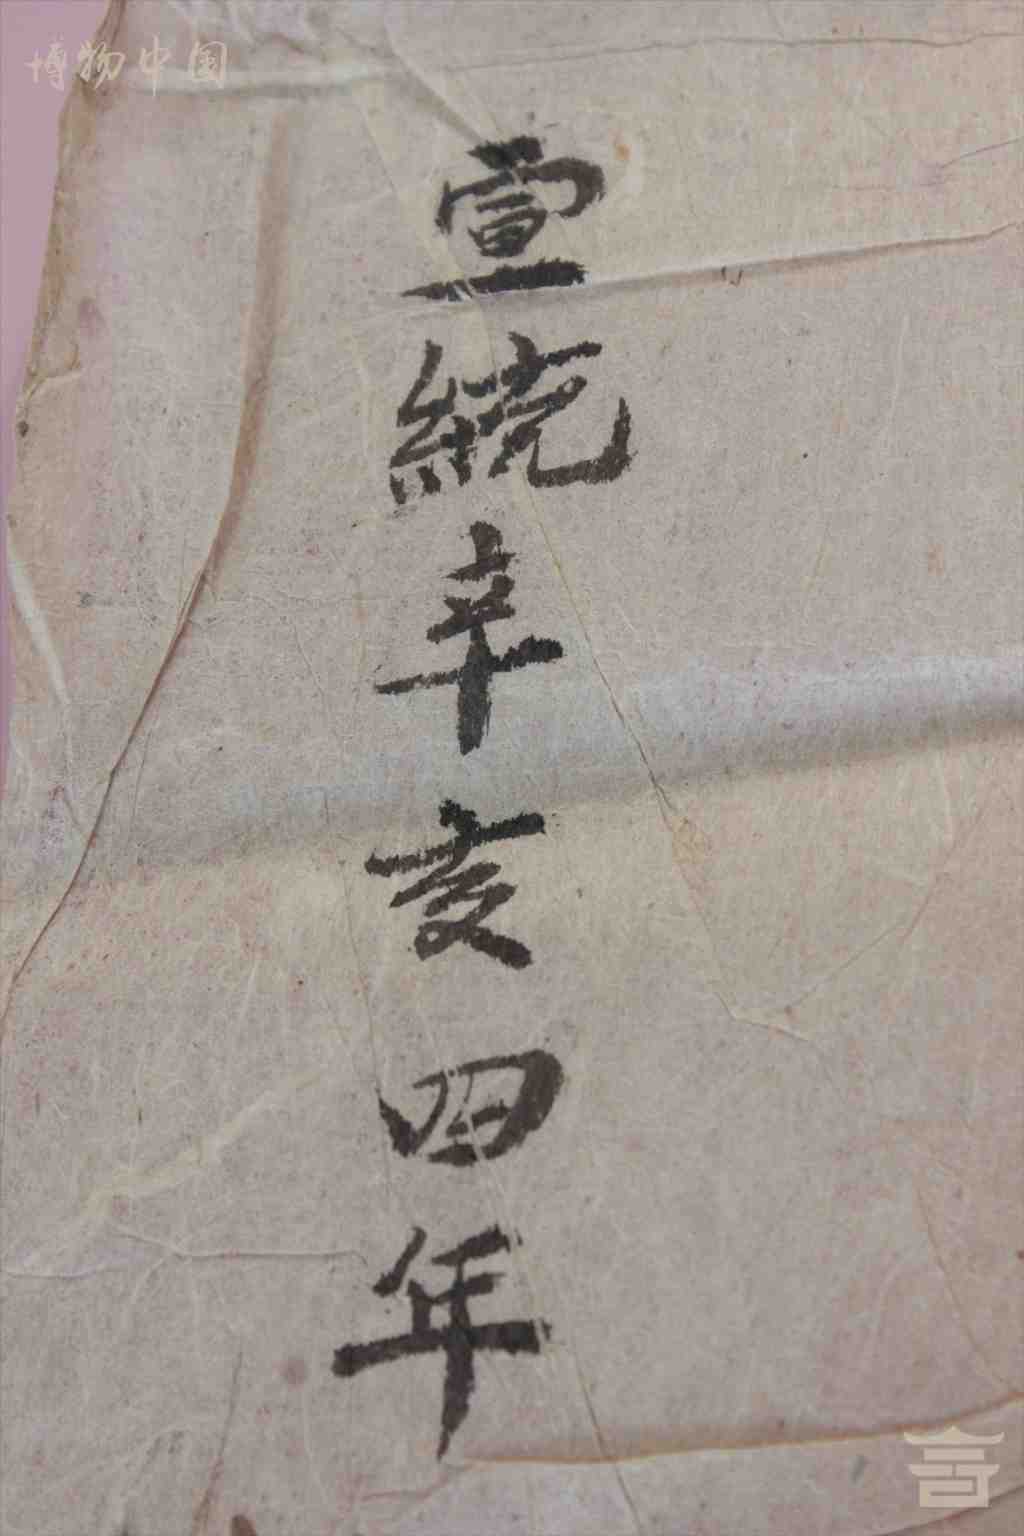 博物中国
宣統辛亥四年